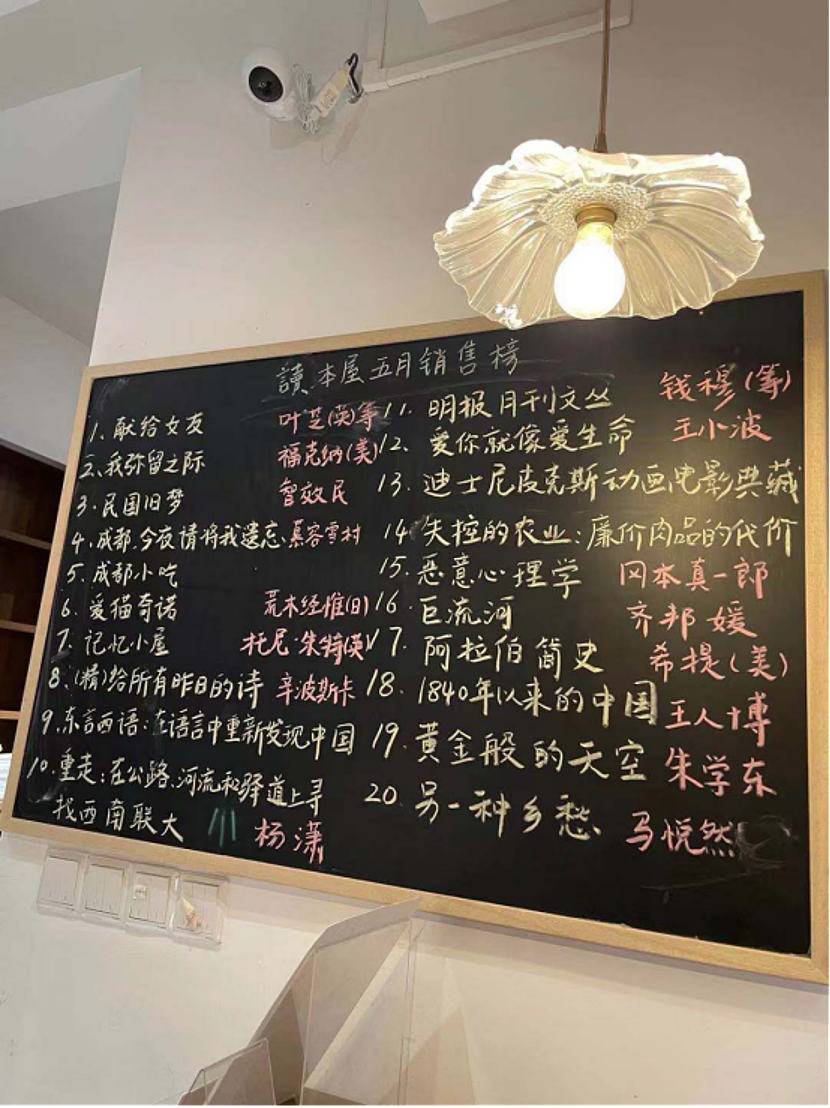 讀本屋五月销售榜
1、献给女友 叶芝(英)等
2、我弥留之际 福克纳(美)
3.民国旧梦 智效民
4、成都,今夜请将我遗忘 慕容雪村
5、成都小吃
6、爱猫奇诺 荒木经惟(日)
7、记忆小屋 托尼·朱特(英)
8、(精)给所有昨日的诗 辛波斯卡
9、东言西语:在语言中重新发现中国
10、重走:在公路、河流和驿道上寻
找西南联大 杨潇
11、明报月刊文丛 钱穆(等)
12、爱你就像爱生命 王小波
13、迪士尼皮克斯动画电影典藏
14、失控的农业:廉价肉品的代价
15、恶意心理学 冈本真一郎
16、巨流河 齐邦媛
17、阿拉伯简史 希提(美)
18、1840年以来的中国 王人博
19、黄金般的天空 朱学东
20、另一种乡愁 马悦然